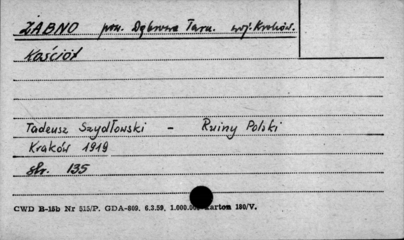 ŻABNO pow. Dąbrowa Tarn. woj. Kraków.
Kościół
Tadeusz Szydłowski - Ruiny Polski
Kraków 1919
str. 135
CWD B-15b Nr 515/P. GDA-809. 6.3.59, 1.000.000 karton 180/V.